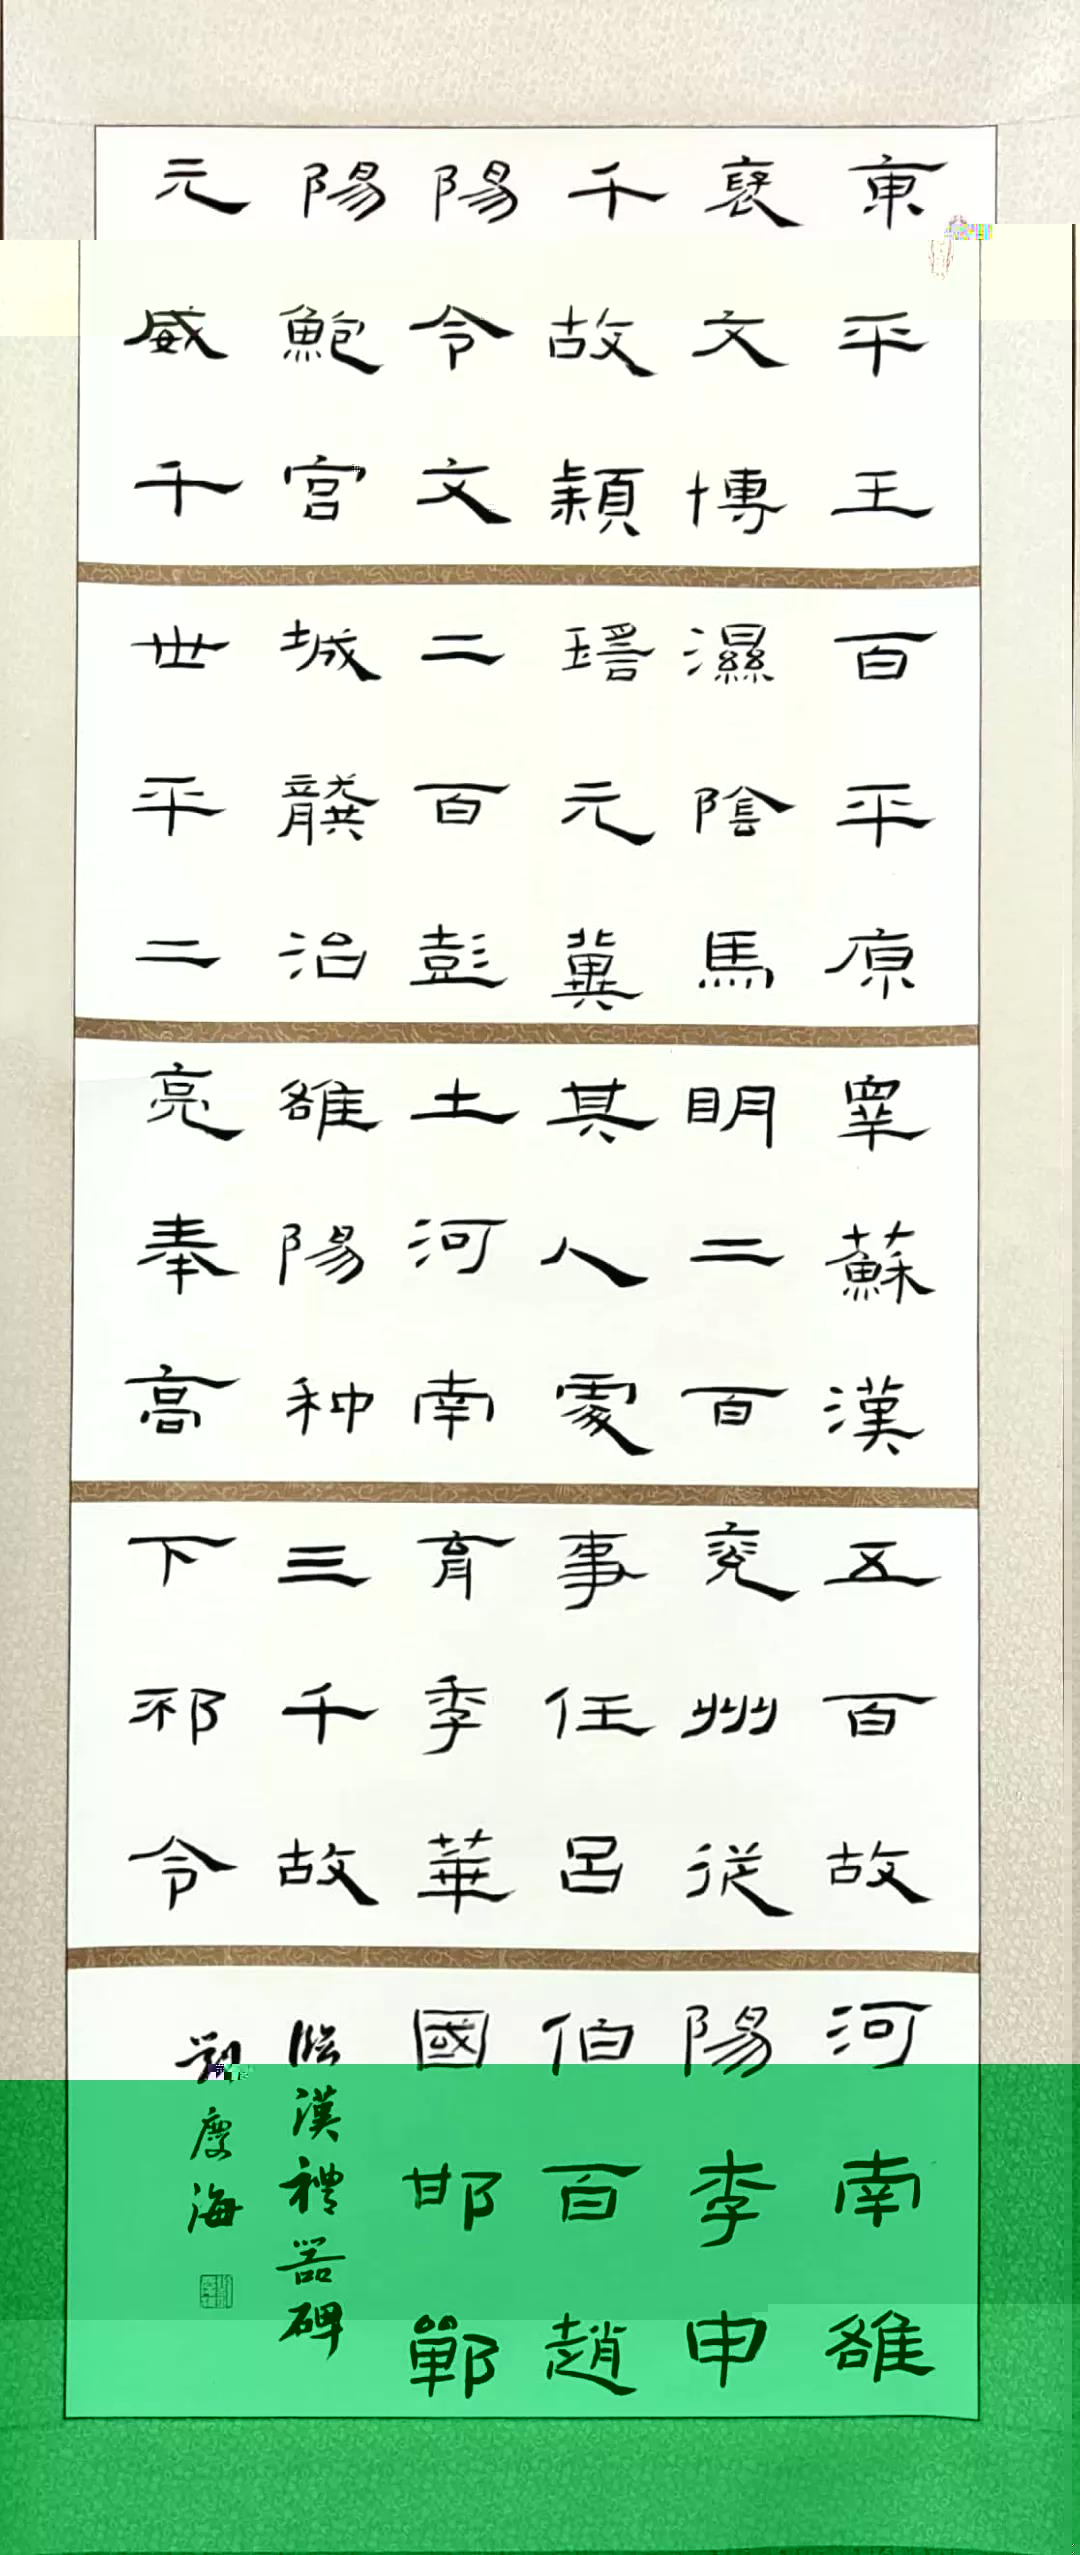 東平王
褒文博
千故穎
陽令文
陽鮑宮
元威千
百平原
濕陰馬
瑤元冀
二百彭
城龔治
世平二
蘇漢
明二百
其人處
土河南
雒陽种
亮奉高
五百故
兗州從
事任呂
育季華
三千故
下邳令
河南雒
陽李申
伯百趙
國邯鄲
臨漢禮器碑
劉慶海